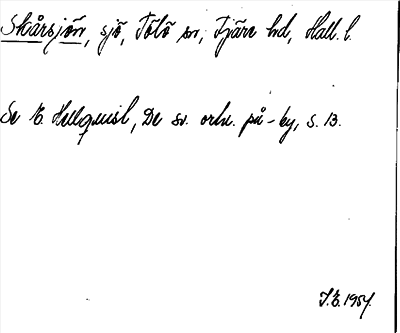 Skårsjön, sjö, Tölö sn, Fjäre hd, Hall. l.
Se E. Hellquist, De sv. ortn. på -by, s. 13.
J.E. 1954.